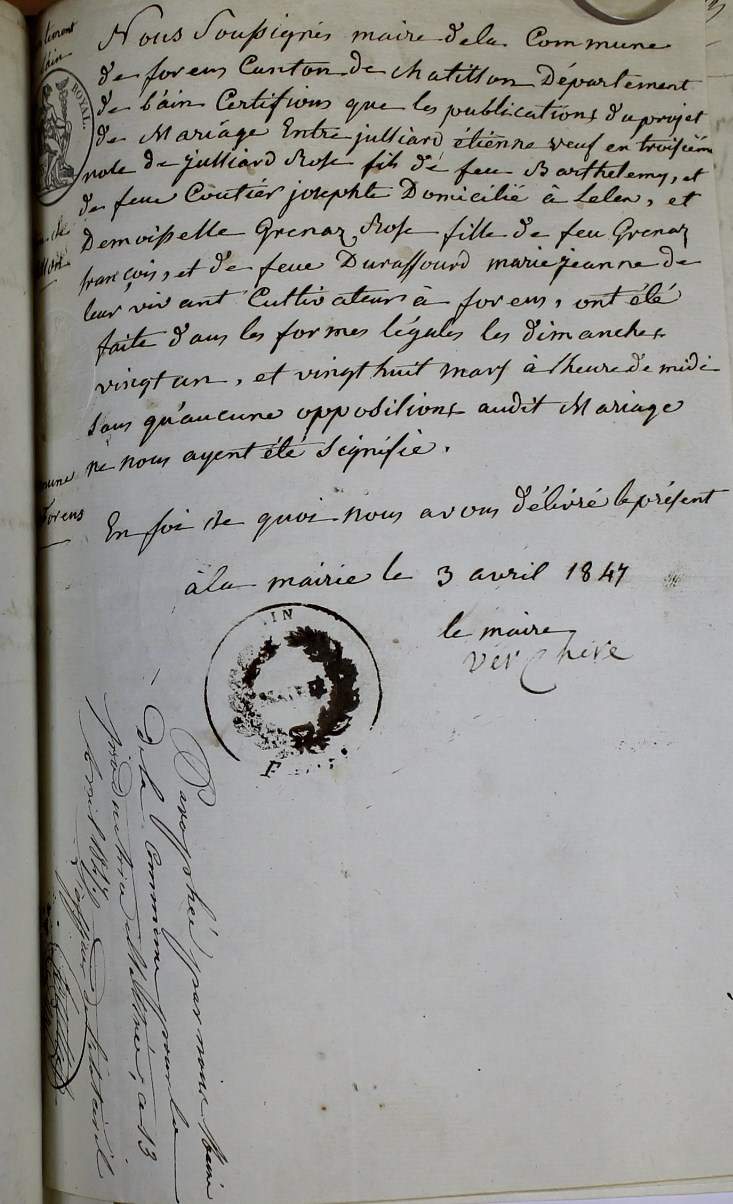 Nous Soussignés maire dela Commune
de forens Canton de chatillon Département
de l'ain Certifions que les publications du projet
de Mariage Entre julliard étienne veuf en troisième
nole de julliard Rose fils de feu Barthelemy, et
de feue Coutier josephte Domicilié à Lelex, et
Demoisselle Grenaz Rose fille de feu Grenaz
françois, et de feue Duraffourd marie jeanne de
leur vivant Cultivateurs à forens, ont été
faite dans les formes légales les dimanches
vingt un, et vingt huit mars à l'heure de midi
sans qu'aucune oppositions audit Mariage
ne nous ayent été signifié.
En foi de quoi nous avons délivré le présent
à la mairie le 3 avril 1847
le maire
Verchere
ROYAL.
forens
AIN
Paraphé par nous Maire
de la Commune pour la